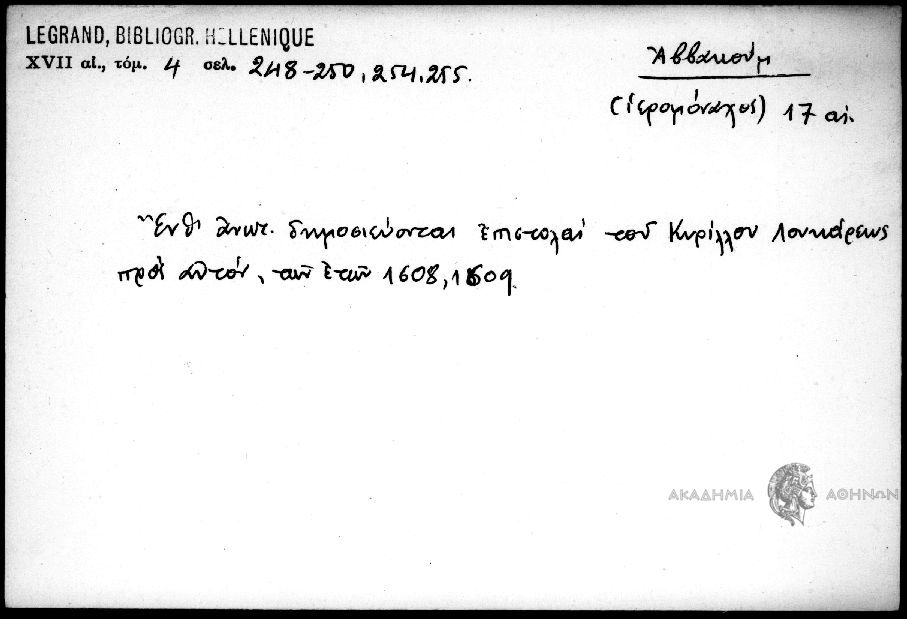 LEGRAND, BIBLIOGR. HELLENIQUE
XVII αἰ., τόμ. 4 σελ. 248-250, 254, 255.
Ἀββακούμ
(ἱερομόναχος) 17 αἰ.
Ἔνθ' ἀνωτ. δημοσιεύονται ἐπιστολαὶ τοῦ Κυρίλλου Λουκάρεως
πρὸς αὐτόν, τῶν ἐτῶν 1608, 1609.
ΑΚΑΔΗΜΙΑ ΑΘΗΝΩΝ